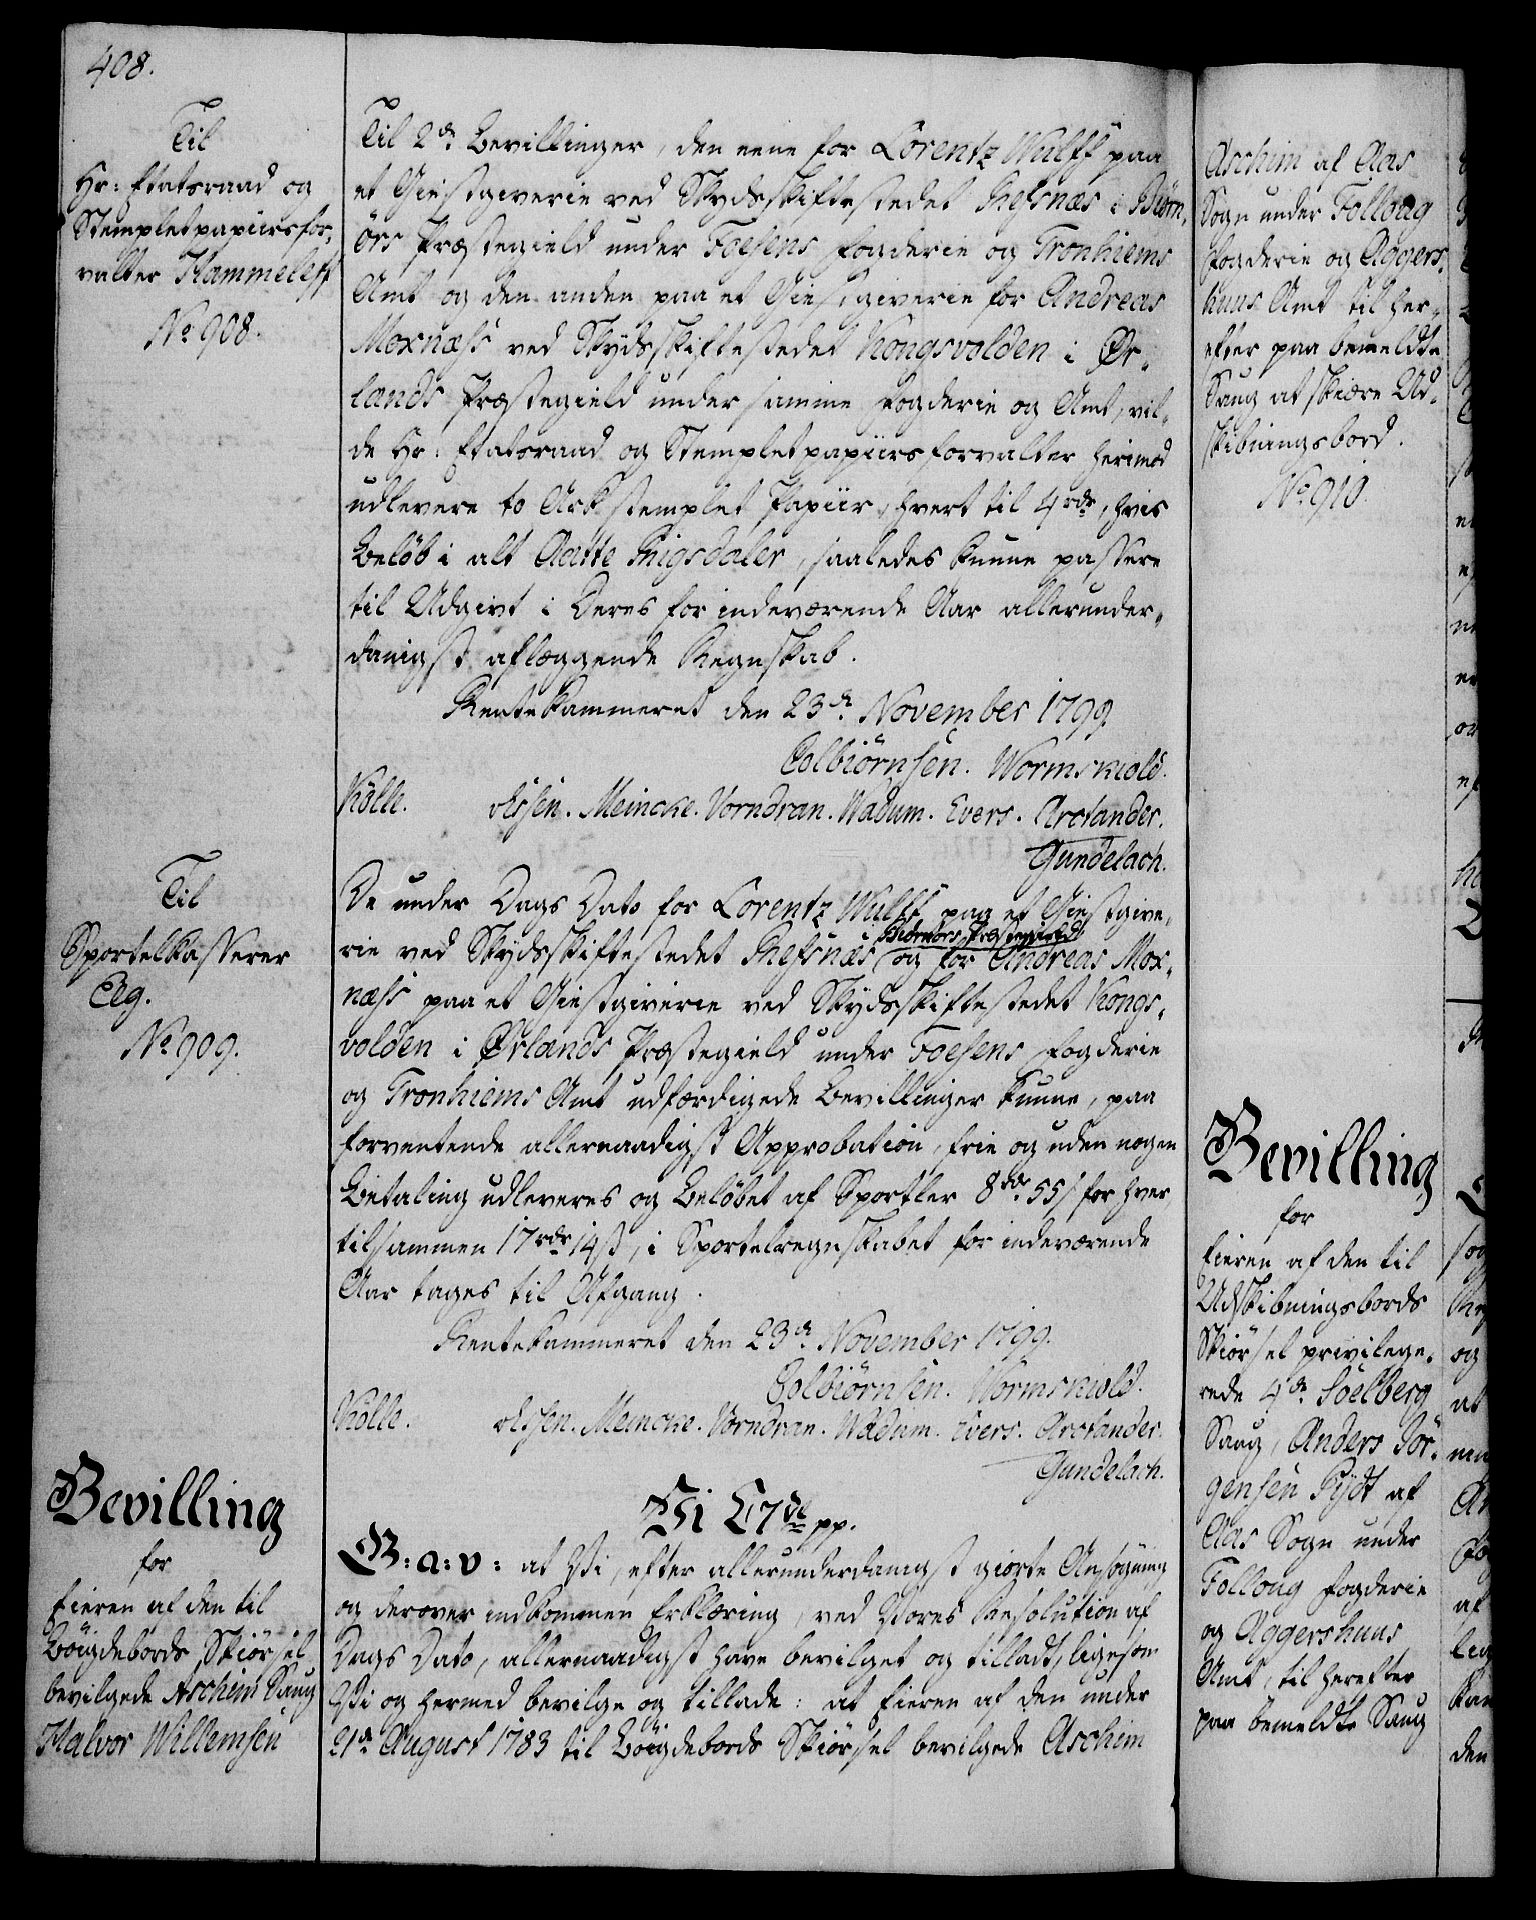 408.
Til
Hr: Etatsraad og
Stempletpapiirsfor„
valter Hammeleff
No 908.
Til 2de Bevillinger, den eene for Lorentz Wulff paa
et Giestgiverie ved Skydsskiftestedet Refsnæs i Biørn„
örs Præstegield under Foesens Fogderie og Tronhiems
Amt og den anden paa et Giestgiverie for Andreas
Moxnæss ved Skydsskiftestedet Kongsvolden i Ør„
lands Præstegield under samme Fogderie og Amt, vil„
de Hr: Etatsraad og Stempletpapiirsforvalter herimod
udlevere to Ark stemplet Papiir, hvert til 4 rdr, hvis
Beløb i alt Aatte Rigsdaler, saaledes kunne passere
til Udgivt i Deres for indeværende Aar allerunder„
danigst aflæggende Regnskab.
Rentekammeret den 23de November 1799.
Colbiörnsen. Wormskiold.
Kölle. Essen. Meincke. Vorndran. Wadum. Evers. Arctander.
Gundelach.
Til
Sportelkasserer
Eeg.
No 909.
De under Dags Dato for Lorentz Wulff paa et Giestgive„
rie ved Skydsskiftestedet Refsnæs Biörnörs Præstegield og for Andreas Mox„
næss paa et Giestgiverie ved Skydsskiftestedet Kongs„
volden i Ørlands Præstegield under Foesens Fogderie
og Tronhiems Amt udfærdigede Bevillinger kunne, paa
forventende allernaadigst Approbation, frie og uden nogen
Betaling udleveres og Beløbet af Sportler 8 rdr 55 s for hver,
tilsammen 17 rdr 14 s, i Sportelregnskabet for indeværende
Aar tages til Afgang.
Rentekammeret den 23de November 1799.
Colbiörnsen. Wormskiold.
Kölle. Essen. Meincke. Vorndran. Wadum. Evers. Arctander.
Gundelach.
Bevilling
for
Eieren af den til
Böigdebords Skiørsel
bevilgede Aschim Saug
Halvor Willemsen
Vi C7de pp.
G: a: v: at Vi, efter allerunderdanigst giorte Ansøgning
og derover indkommen Erklæring, ved Vores Resolution af
Dags Dato, allernaadigst have bevilget og tilladt, ligesom
Vi og hermed bevilge og tillade: at Eieren af den under
21de August 1783 til Böigdebords Skiørsel bevilgede Aschim
Aschim af Aas
Sogn under Folloug
Fogderie og Aggers„
huus Amt til her„
efter paa bemeldte
Saug at skiære Ud„
skibningsbord.
No 910.
Bevilling
for
Eieren af den til
Udskibningsbords
Skiørsel privilege„
rede 4de Soelberg
Saug, Anders Jör„
gensen Pydt af
Aas Sogn under
Folloug Fogderie
og Aggershuus
Amt, til herefter
paa bemeldte Saug